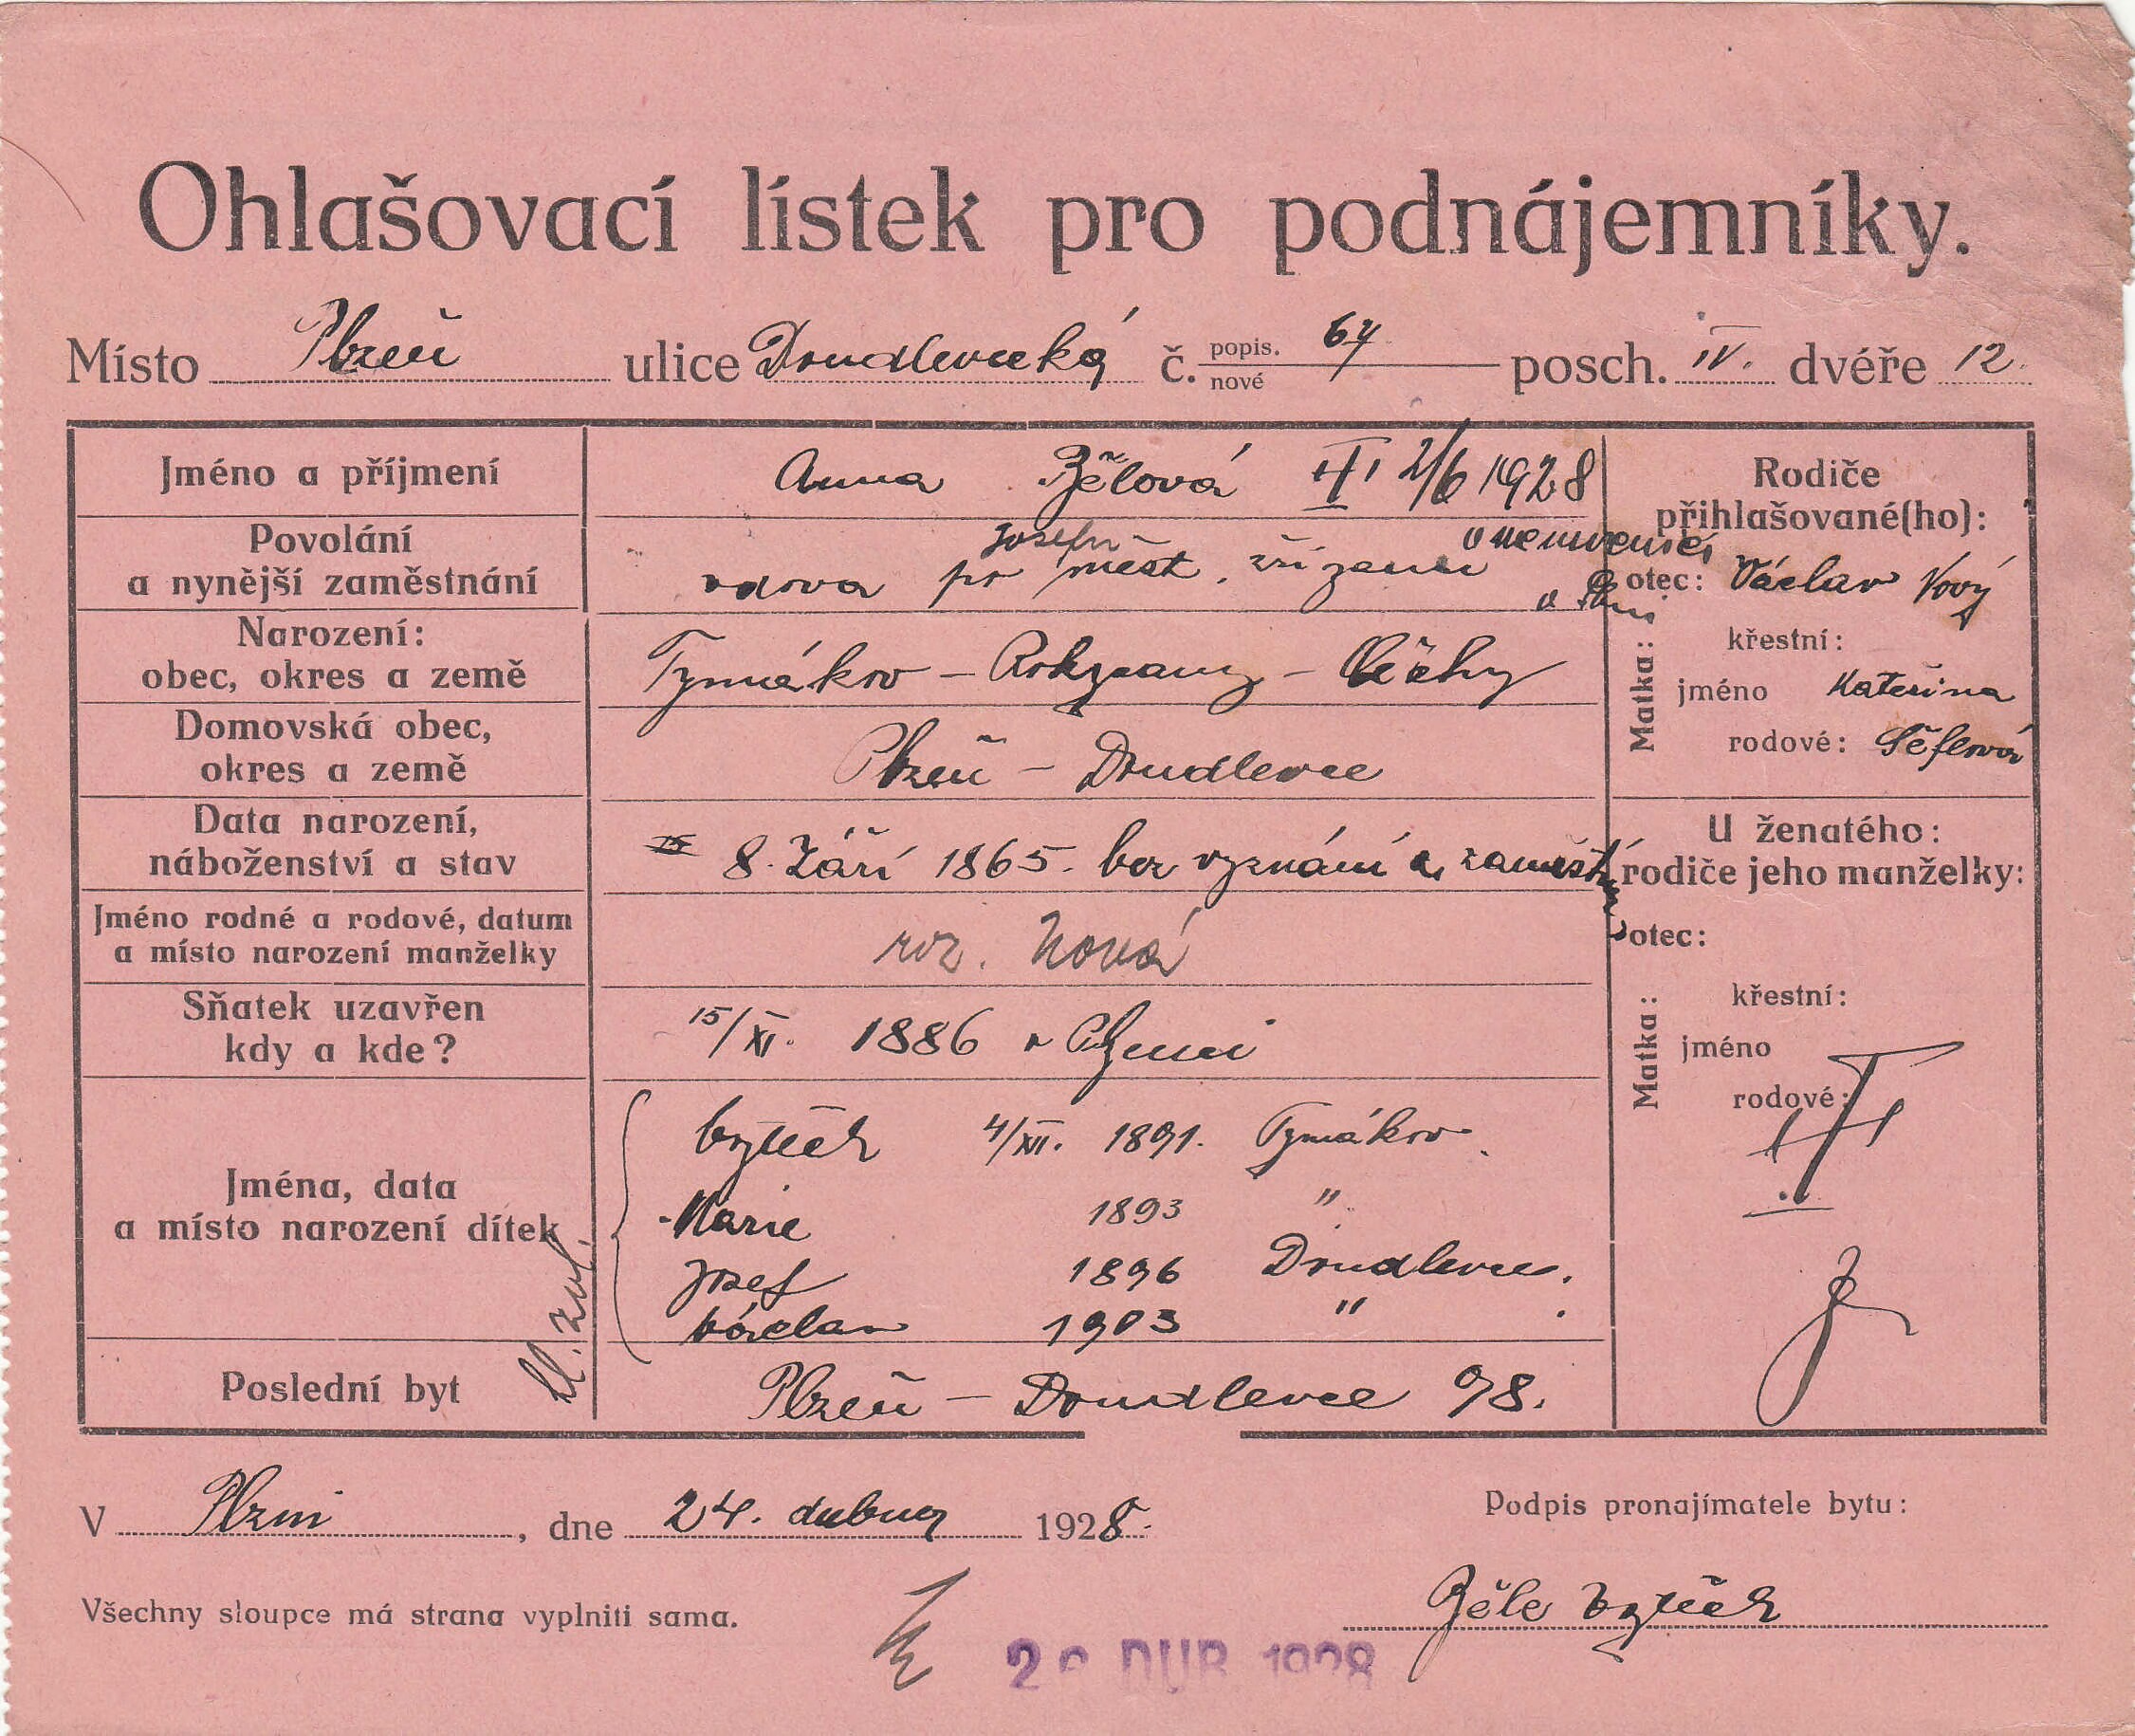 Ohlašovací lístek pro podnájemníky.
Místo Plzeň ulice Doudlevecká č. popis. nové 64 posch. IV. dvéře 12.
Jméno a příjmení
Anna Bělová 2/6 1928
Povolání
a nynější zaměstnání
Josefu
vdova po měst. zřízenci v nemocnici
v Plzni
Narození:
obec, okres a země
Tymákov – Rokycany – Čechy
Domovská obec,
okres a země
Plzeň – Doudlevce
Data narození,
náboženství a stav
8. Září 1865. bez vyznání a zaměst
Jméno rodné a rodové, datum
a místo narození manželky
roz. Nová
Sňatek uzavřen
kdy a kde?
15/XI. 1886 v Plzni
Jména, data
a místo narození dítek
Vojtěch 4/XII. 1891. Tymákov.
Marie 1893 "
Josef 1896 Doudlevce.
Václav 1903 " .
Poslední byt
Plzeň – Doudlevce 98.
Rodiče
přihlašované(ho):
otec: Václav Nový
Matka:
křestní:
jméno Kateřina
rodové:
U ženatého:
rodiče jeho manželky:
otec:
Matka:
křestní:
jméno
rodové:
V Plzni, dne 24. dubna 1928.
Podpis pronajímatele bytu:
Běle Vojtěch
Všechny sloupce má strana vyplniti sama.
DUB. 1928